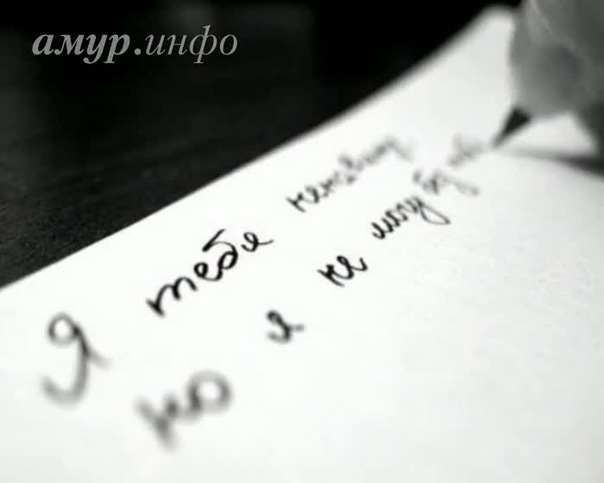 амур.инфо
Я тебя ненавижу
но я не могу без